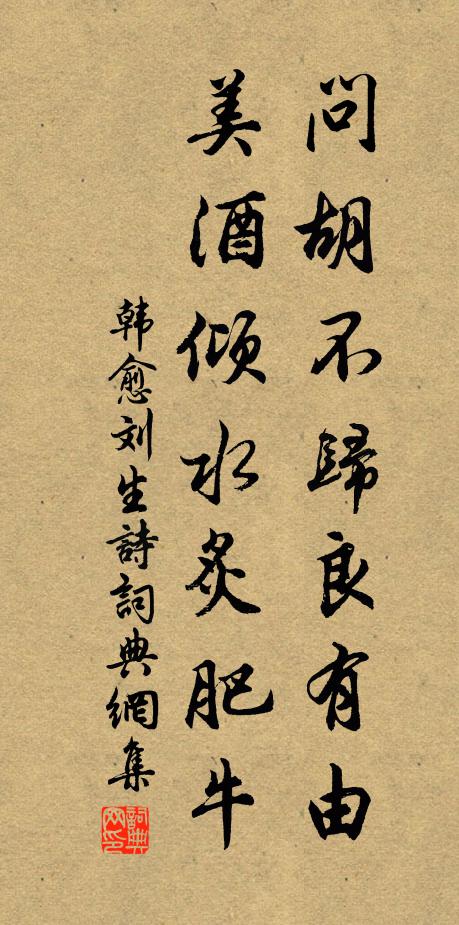 問胡不歸良有由
美酒傾水炙肥牛
韩愈刘生詩詞典網集
詞典網印